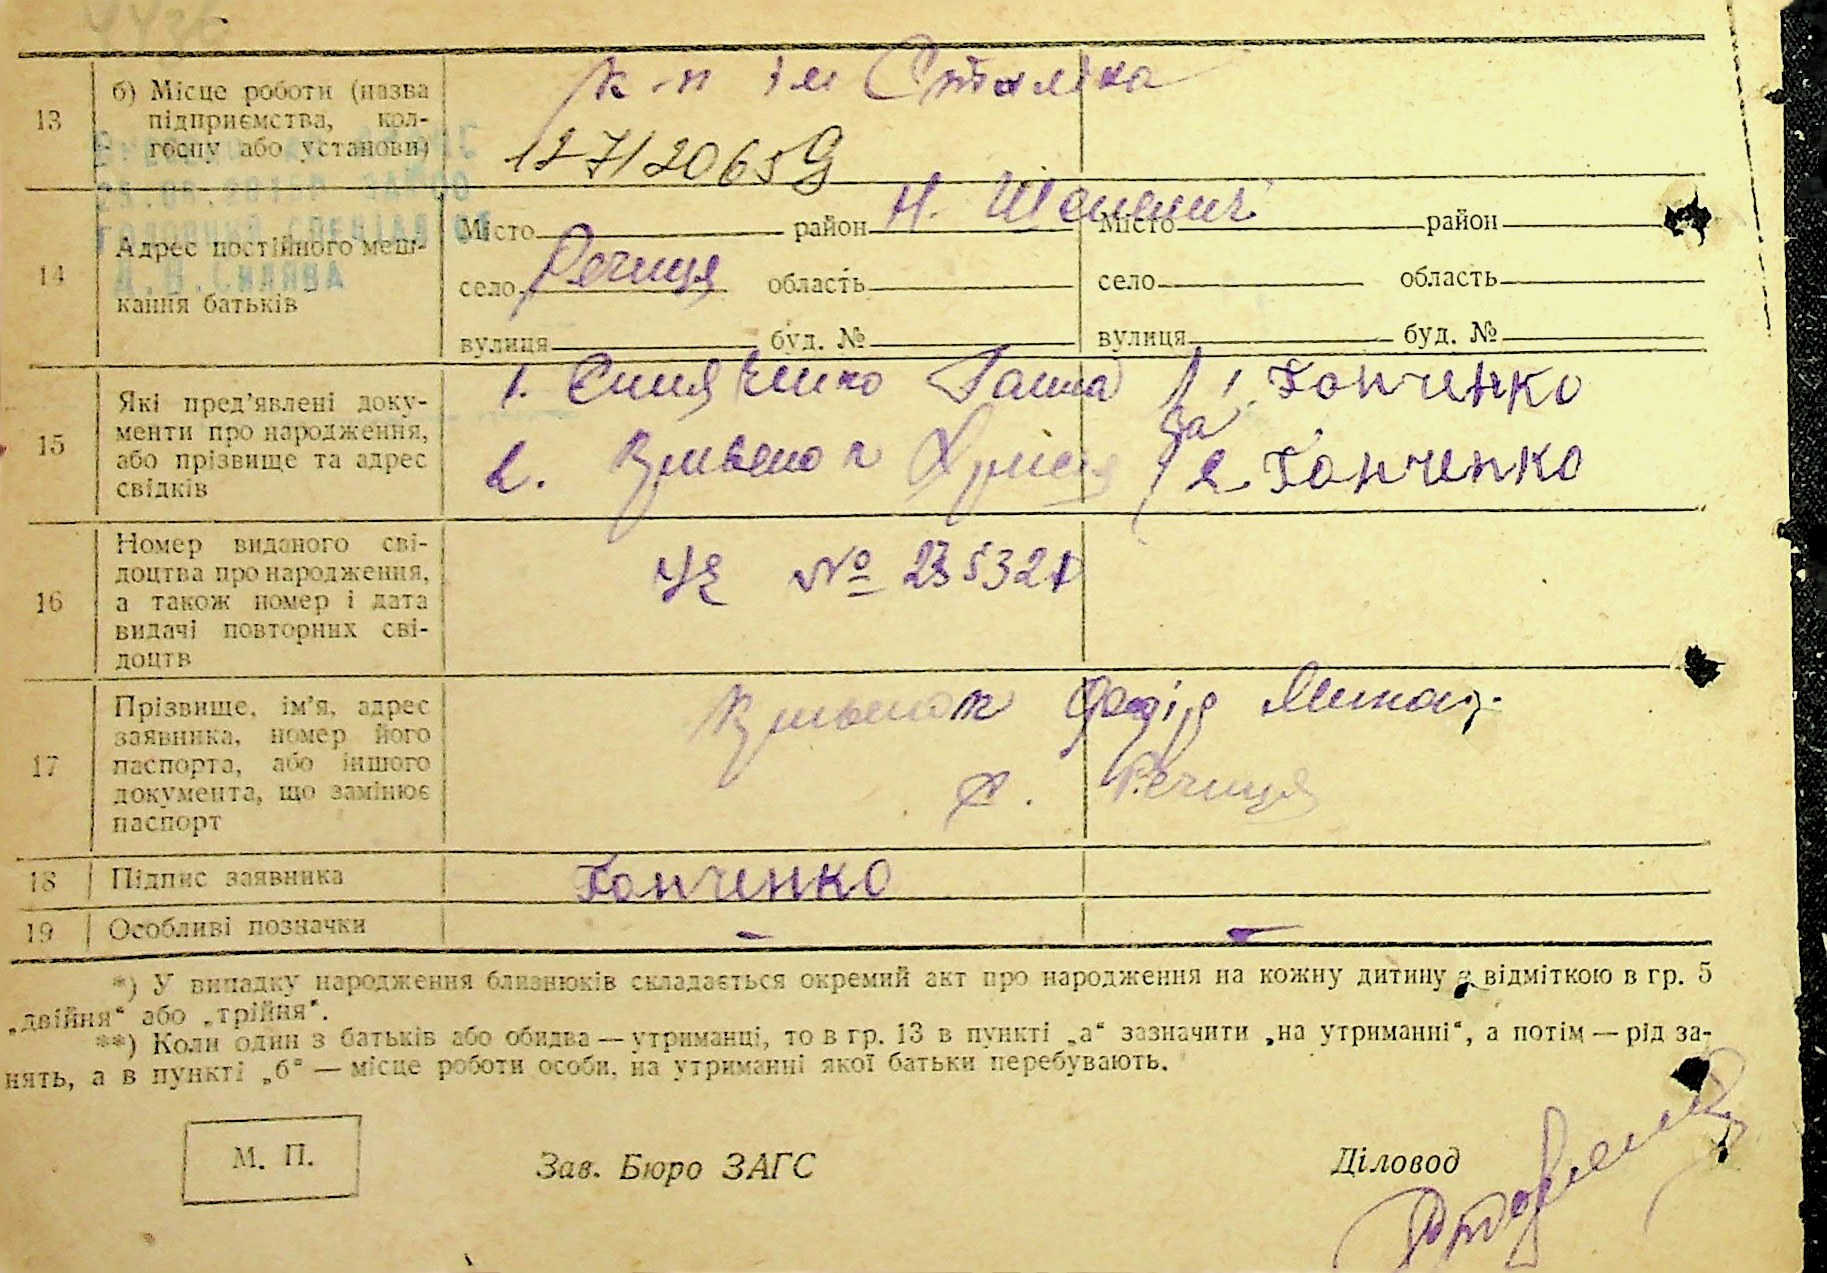 13
б) Місце роботи (назва
підприємства, кол-
госпу або установи)
к-п ім Сталіна
127/20659
14
Адрес постійного меш-
кання батьків
Місто район Н. Шепелич Місто район
село Речиця область село область
вулиця буд. № вулиця буд. №
15
Які пред’явлені доку-
менти про народження,
або прізвище та адрес
свідків
1. Ганна 1. Гопченко
за
2. 2. Гопченко
16
Номер виданого сві-
доцтва про народження,
а також номер і дата
видачі повторних сві-
доцтв
№ 235321
17
Прізвище, ім’я, адрес
заявника, номер його
паспорта, або іншого
документа, що замінює
паспорт
с. Речиця
18 Підпис заявника Гопченко
19 Особливі позначки - -
*) У випадку народження близнюків складається окремий акт про народження на кожну дитину з відміткою в гр. 5
„двійня“ або „трійня“.
**) Коли один з батьків або обидва — утриманці, то в гр. 13 в пункті „а“ зазначити „на утриманні“, а потім — рід за-
нять, а в пункті „б“ — місце роботи особи, на утриманні якої батьки перебувають.
М. П. Зав. Бюро ЗАГС Діловод